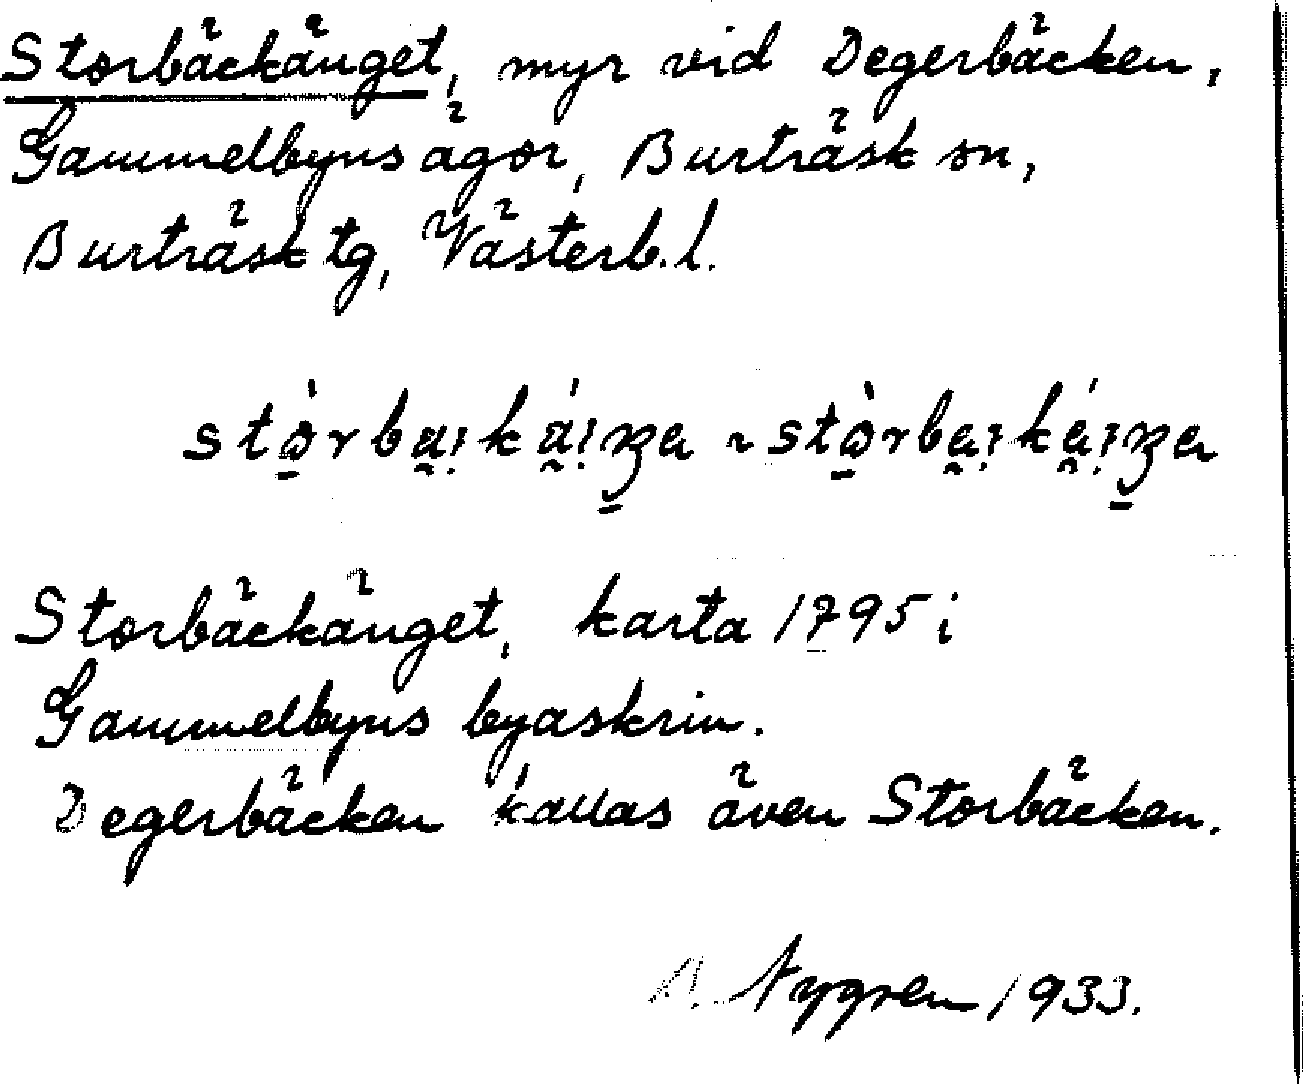 Storbäckänget, myr vid Degerbäcken,
Gammelbyns ägor, Burträsk sn,
Burträsk tg, Västerb. l.
Storbäckänget, karta 1795 i
Gammelbyns byaskrin.
Degerbäcken kallas även Storbäcken.
Nygren 1933.